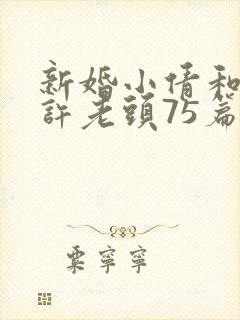 新婚小倩和
許老頭75篇
粟寧寧